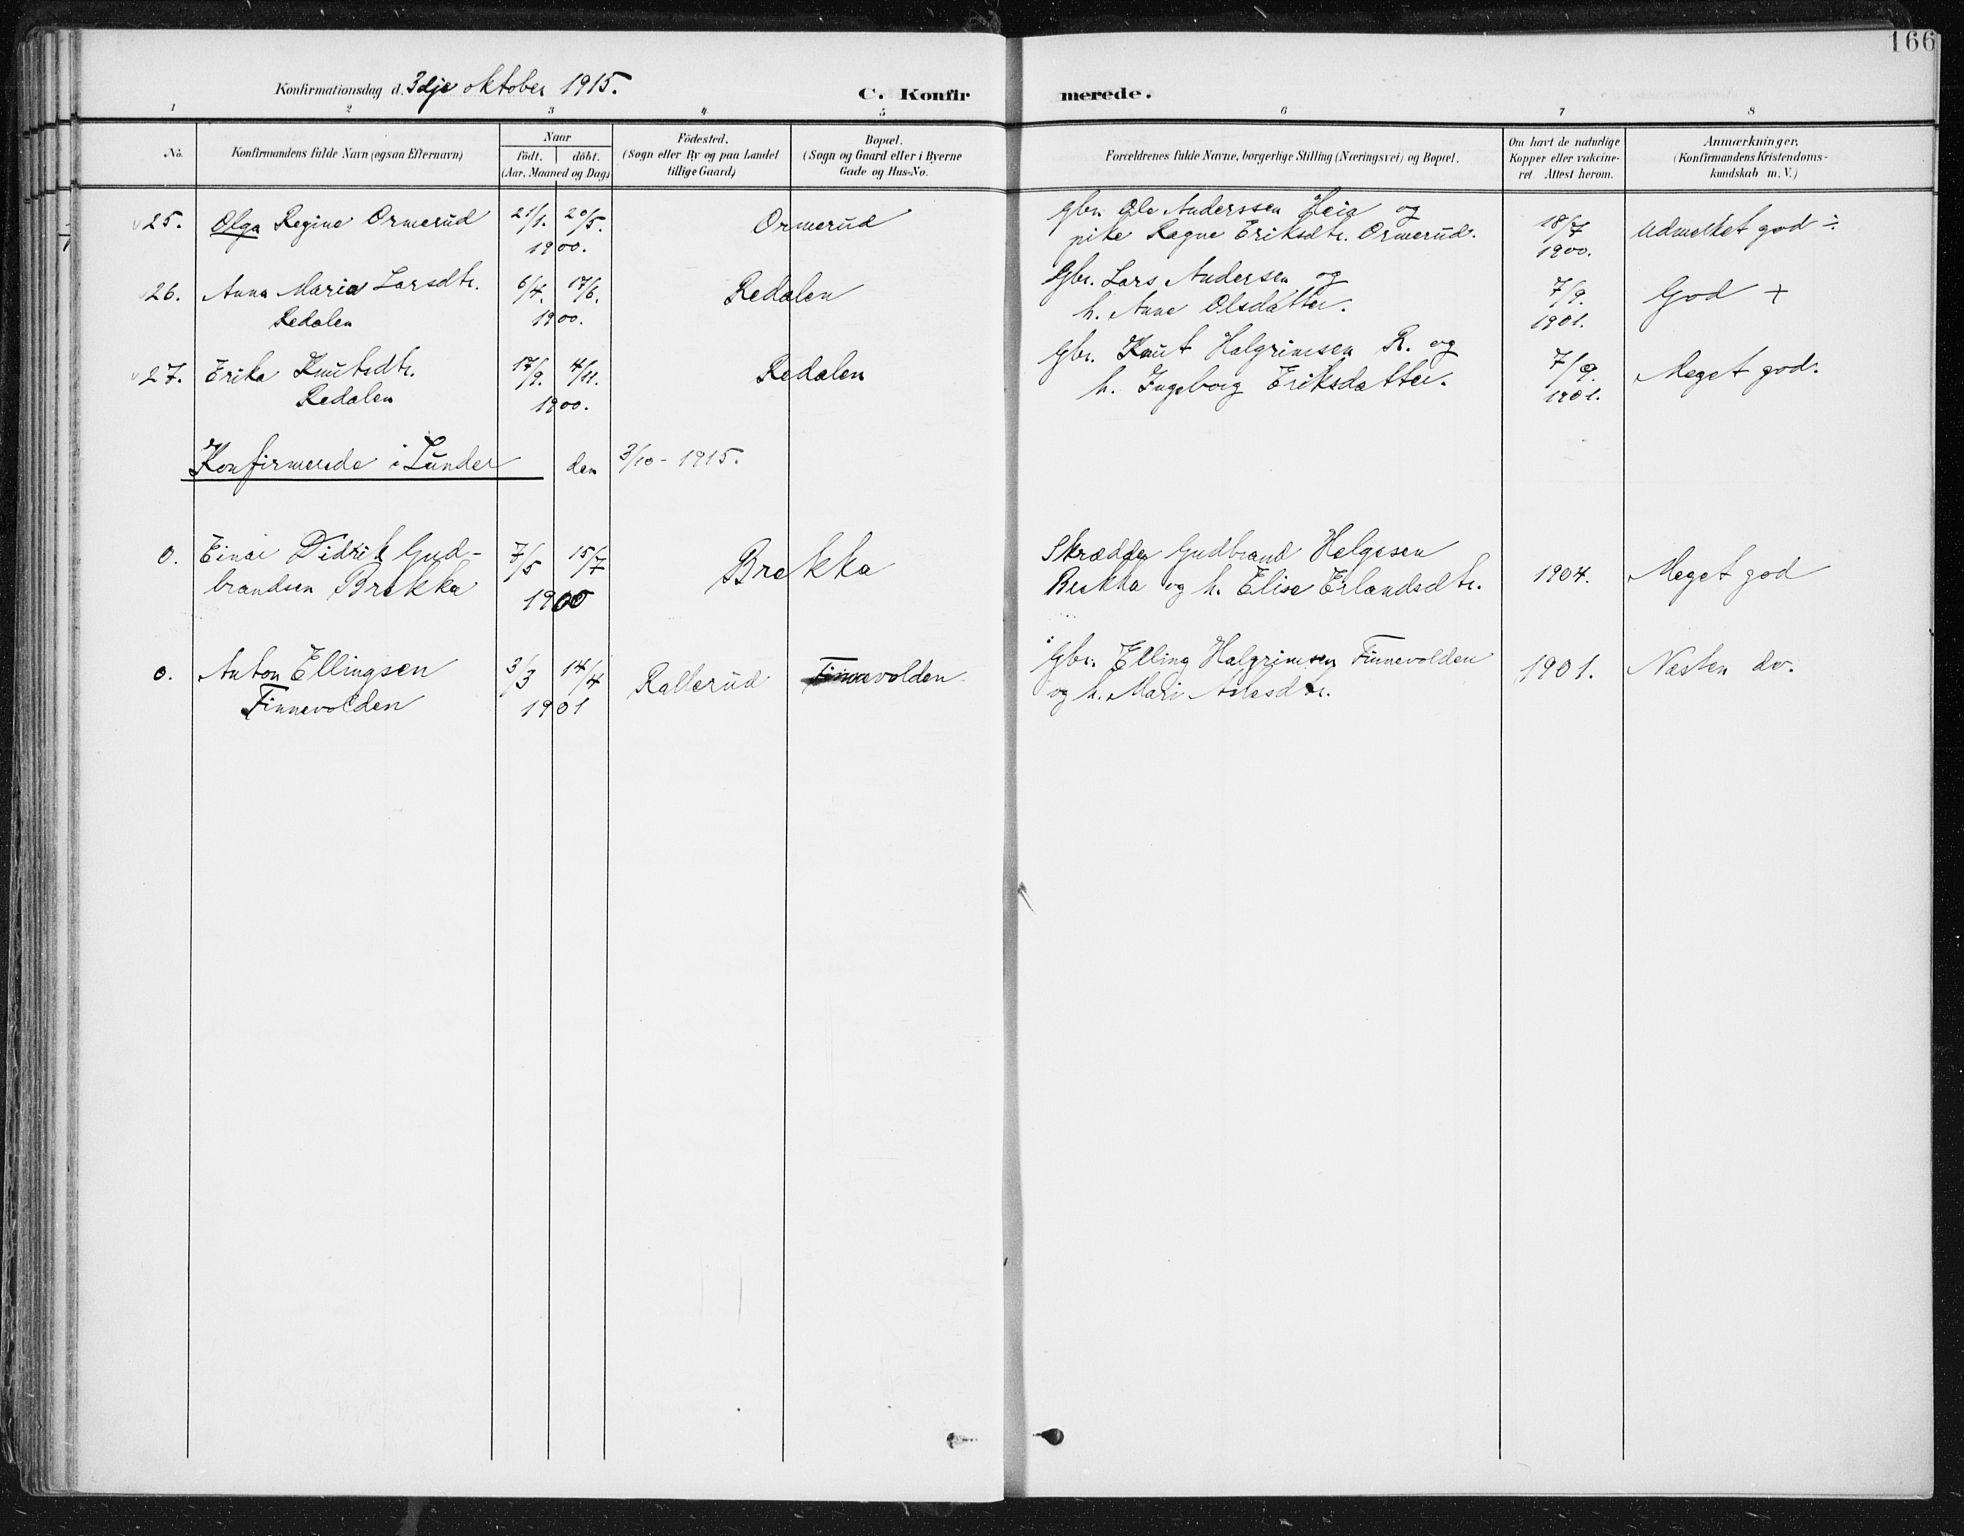 166
Konfirmationsdag d. 3dje oktober 1915.
C. Konfirmerede.
1 2 3 4 5 6 7 8
No.
Konfirmandens fulde Navn (ogsaa Efternavn)
Naar
födt. döbt.
(Aar, Maaned og Dag)
Födested.
(Sogn eller By og paa Landet
tillige Gaard)
Bopæl.
(Sogn og Gaard eller i Byerne
Gade og Hus-No.
Forældrenes fulde Navne, borgerlige Stilling (Næringsvei) og Bopæl.
Om havt de naturlige
Kopper eller vakcine-
ret. Attest herom.
Anmærkninger.
(Konfirmandens Kristendoms-
kundskab m. V.)
25. Olga Regine Ormerud 21/1. 20/5. 1900. Ormerud
Gbr. Ole Anderssen Heia og
pike Ragne Eriksdtr. Ormerud.
18/7 1900. Udmerket god ÷
26. Anna Maria Larsdtr.
Redalen
6/4. 17/6. 1900. Redalen
Gbr. Lars Andersen og
h. Anne Olsdatter.
7/9. 1901. God +
27. Erika Knutsdtr.
Redalen
17/9. 4/11. 1900. Redalen
Gbr. Knut Halgrimsen R. og
h. Ingeborg Eriksdatter.
7/9. 1901. Meget god.
Konfirmerede i Lunder den 3/10 - 1915.
0. Einar Didrik Gud-
brandsen Brekka
7/5 15/7 1900 Brekka
Skrædder Gudbrand Helgesen
Brekka og h. Elise Erlandsdtr.
1904. Meget god
0. Anton Ellingsen
Finnevolden
3/3 14/4 1901 Rallerud Finnevolden.
Gbr. Elling Halgrimsen Finnevolden
og h. Mari Aslesdtr.
1901. Næsten do.